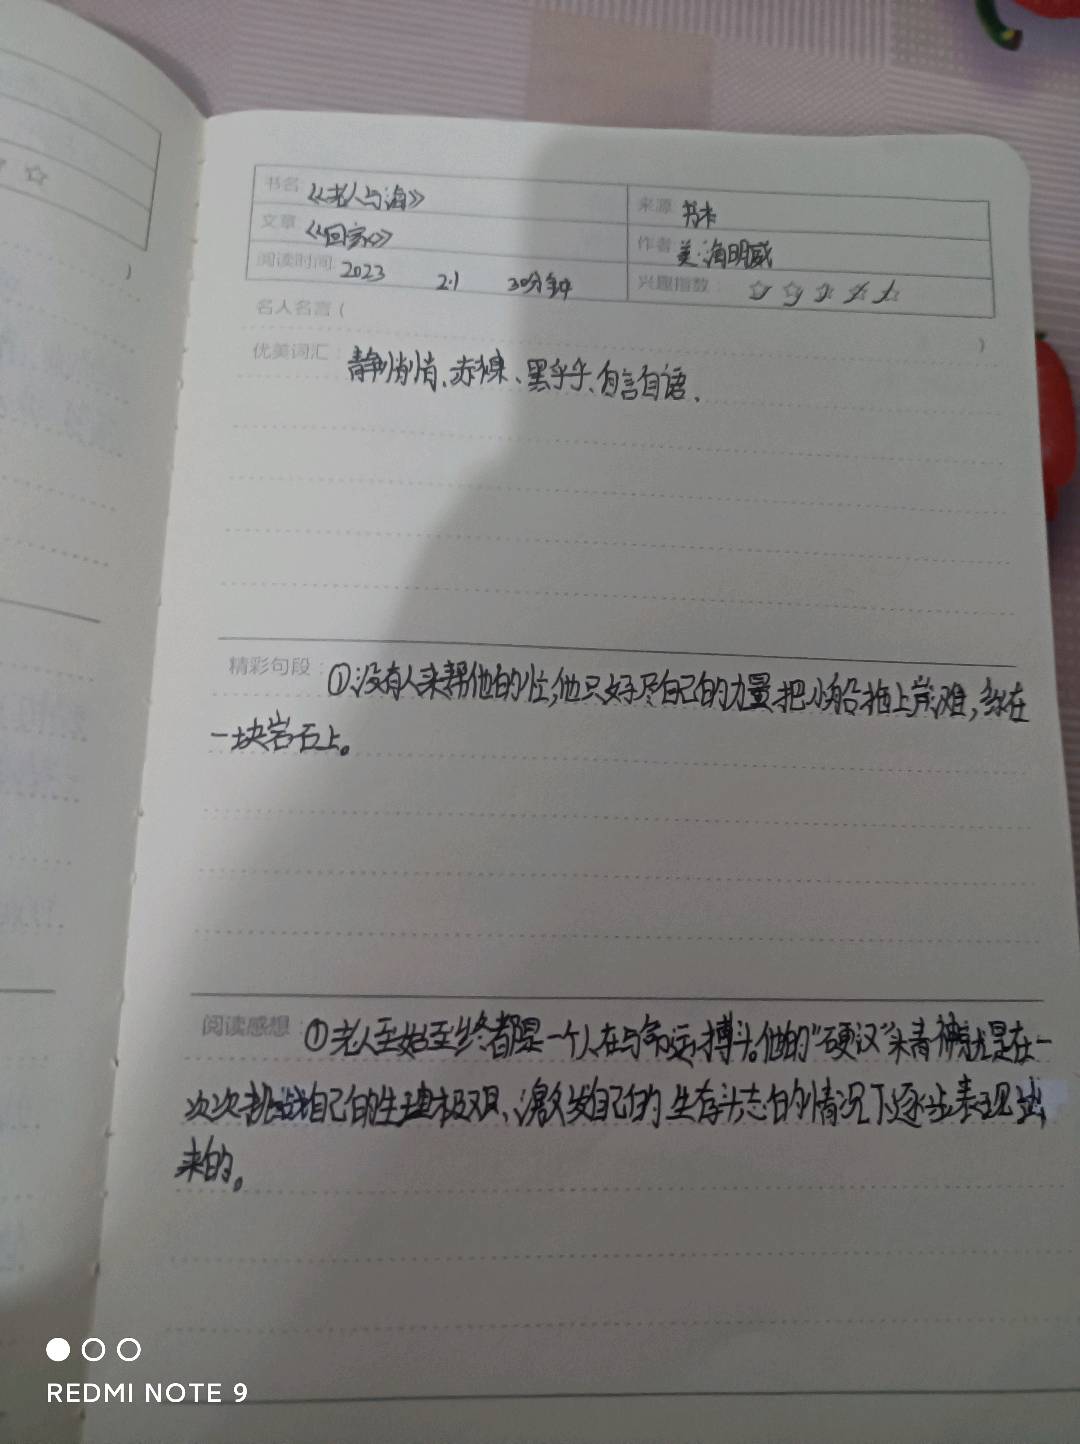 书名 《老人与海》 来源 书本
文章 《回家》 作者 美·海明威
阅读时间 2023 2.1 30分钟 兴趣指数: ☆☆☆☆☆
名人名言( )
优美词汇: 静悄悄、赤裸、黑乎乎、自言自语.
精彩句段: ①没有人来帮他的忙,他只好尽自己的力量把小船拖上岸滩,紧在
一块岩石上。
阅读感想: ①老人至始至终都是一个人在与命运搏斗。他的"硬汉"精神就是在一
次次挑战自己的生理极限、激发自己的生存状态的情况下逐步表现出
来的。
REDMI NOTE 9